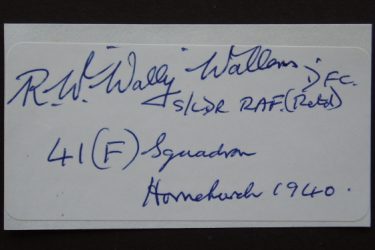 R.W. "Wally" Wallens DFC.
S/LDR RAF. (Retd)
41 (F) Squadron
Hornchurch 1940.